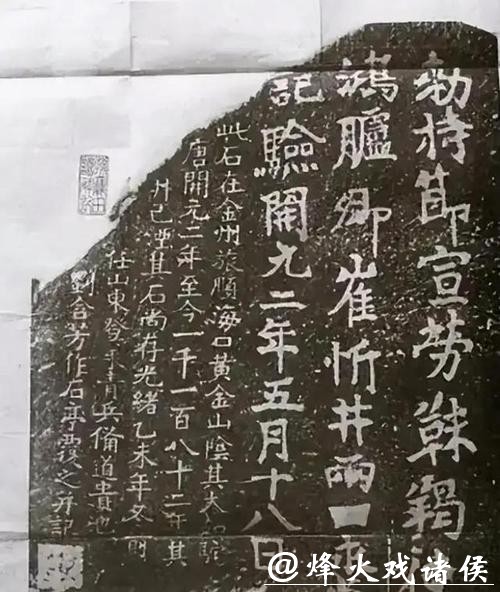 勑持節宣勞靺羯
鴻臚卿崔忻井兩口永
記驗開元二年五月十八日
此石在金州旅順海口黃金山陰其大如駝
唐開元二年至今一千一百八十二年其
井已湮其石尚存光緒乙未年冬前
任山東登萊青兵備道貴池
劉含芳作石亭覆之并記
@烽火戏诸侯